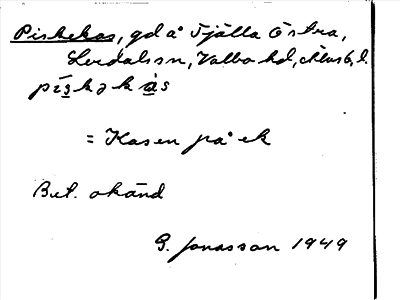 Piskekas, gd å Fjälla Östra,
Lerdals sn, Valbo hd, Älvsb. l.
pískəkàs
= Kasen på ek
Bet. okänd
G. Jonasson 1949